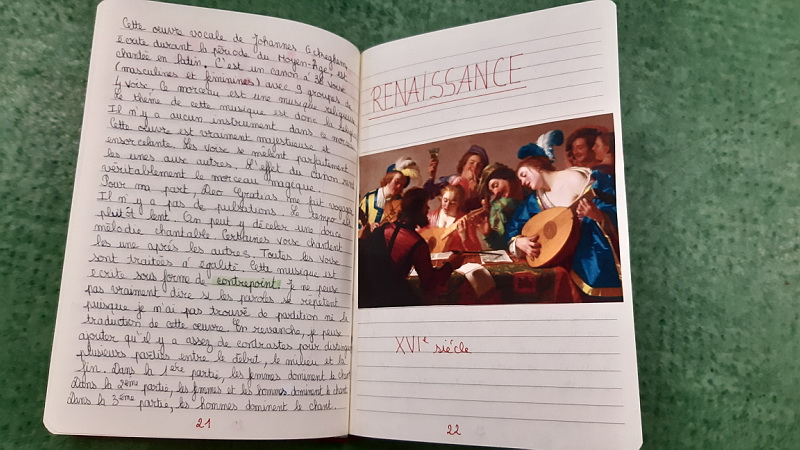 Cette œuvre vocale de Johannes Ockeghem,
écrite durant la période du Moyen-Âge, est
chantée en latin. C'est un canon à 36 voise
(masculines et féminines) avec 9 groupes de
4 voise. Ce morceau est une musique religieuse
Le thème de cette musique est donc la
Il n'y a aucun instrument dans ce morceau
Cette œuvre est vraiment majestueuse et
ensorcelante. Les voise se mêlent parfaitement
les unes aux autres. L'effet du canon rend
véritablement le morceau magique.
Pour ma part, Deo Gratias me fait voyager
Il n'y a pas de pulsations. Le tempo est
plutôt lent. On peut y déceler une douce
mélodie chantable. Certaines voise chantent
les une après les autres. Toutes les voise
sont traitées à égalité. Cette musique est
écrite sous forme de contrepoint. Je ne peuse
pas vraiment dire si les paroles se répètent
puisque je n'ai pas trouvé de partition ni la
traduction de cette œuvre. En revanche, je peuse
ajouter qu'il y a assez de contrastes pour distinguer
plusieurs parties entre le début, le milieu et la
fin. Dans la 1ère partie, les femmes dominent le chant
Dans la 2ème partie, les femmes et les hommes dominent le chant
Dans la 3ème partie, les hommes dominent le chant.
21
RENAISSANCE
XVIe siècle
22